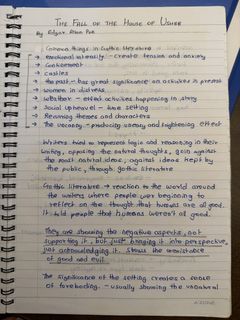 The Fall of the House of Usher
By Edgar Allan Poe
Common things in Gothic literature
→ emotional intensity - create tension and anxiety
→ Confinement
→ Castles
→ the past - has great significance on activities in present
→ Women in distress
→ Weather - effect activities happening in story
→ Social upheavel - time setting
→ Recurring themes and characters
→ The uncanny - producing uneasy and frightening effect
Writers tried to represent logic and reasoning in their
writing, opposing the natural thoughts, goin against
the most natural ideas, against ideas kept by
the public, through gothic literature
Gothic literature → reaction to the world around
the writers where people were beginning to
reflect on the thought that humans are all good.
It told people that humans weren't all good.
They are showing the negative aspects, not
supporting it, but just bringing it into perspective,
just acknowledging. Shows the coexistance
of good and evil
The significance of the setting creates a sense
of foreboding - usually showing the unnatural